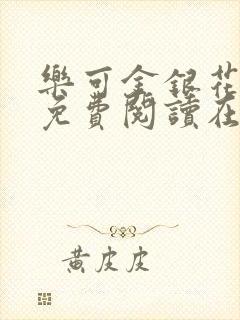 樂可金銀花
免費閱讀在
黃皮皮